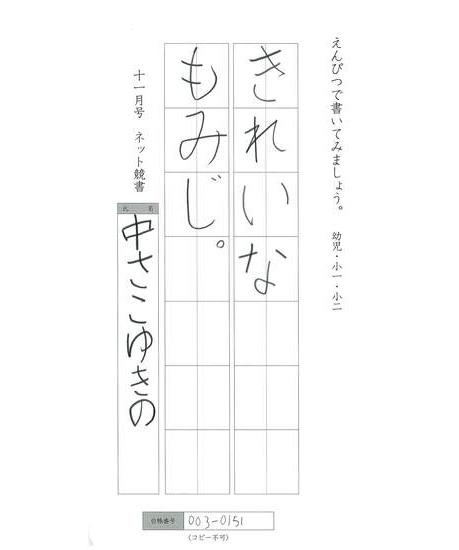 えんぴつで書いてみましょう。　幼児・小一・小二
きれいな
もみじ。
十一月号　ネット競書
氏　名
中さこゆきの
台帳番号 003-0151
（コピー不可）